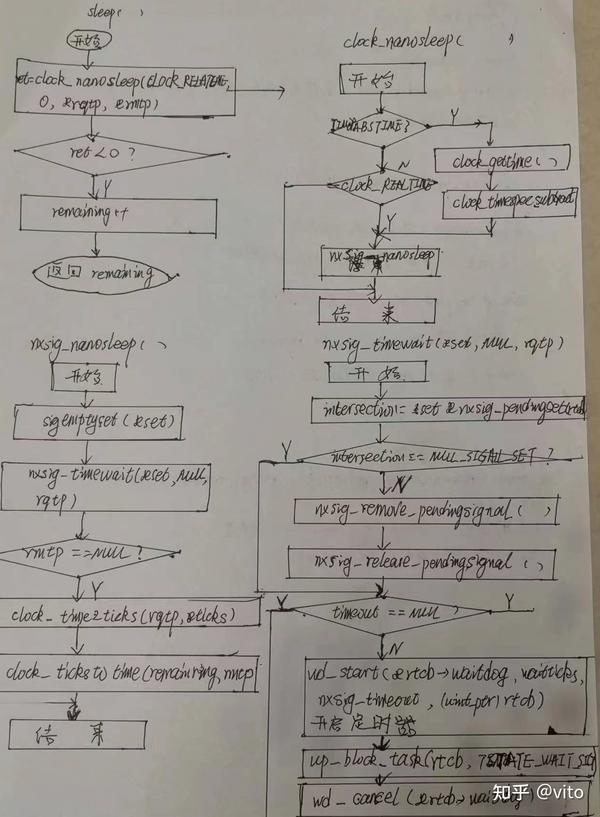 sleep( )
开始
ret=clock_nanosleep(CLOCK_REALTIME,
0, &rqtp, &rmtp)
ret<0?
Y
remaining++
返回 remaining
clock_nanosleep( )
开始
Y
clock_gettime( )
N
clock_REALTIME
clock_timespec_subtract
Y
nxsig_nanosleep
结束
nxsig_nanosleep( )
开始
sigemptyset(&set)
nxsig_timewait(&set, NULL,
rqtp)
rmtp ==NULL?
Y
clock_time2ticks(rqtp, &ticks)
clock_ticks to time(remainring, rmtp)
结束
nxsig_timewait(&set, NULL, rqtp)
开始
intersection= &set & nxsig_pendingset(rtcb)
Y
intersection == NULL_SIGNAL_SET ?
N
nxsig_remove_pendingsignal( )
nxsig_release_pendingsignal( )
Y
timeout == NULL ?
Y
N
wd_start(&rtcb->waitdog, waitticks,
nxsig_timeout, (uint_ptr)rtcb)
开启定时器
up_block_task(rtcb, TSTATE_WAIT_SIG
wd_cancel(&rtcb->waitdog)
知乎 @vito